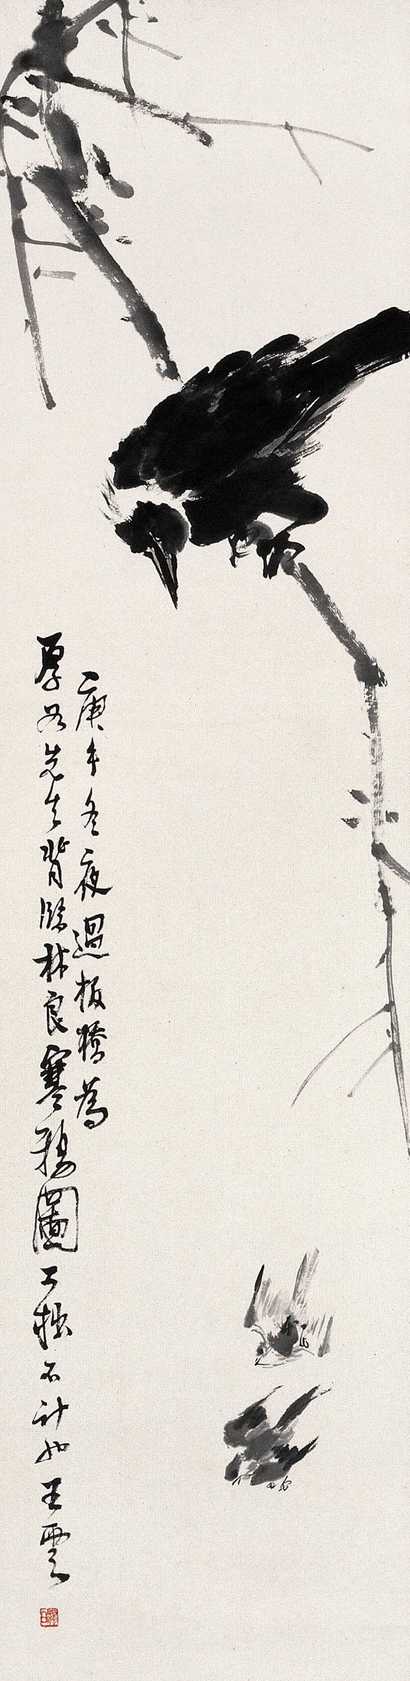 庚午冬夜過板橋為
厚如先生背臨林良寒鴉圖工拙不計也王雲